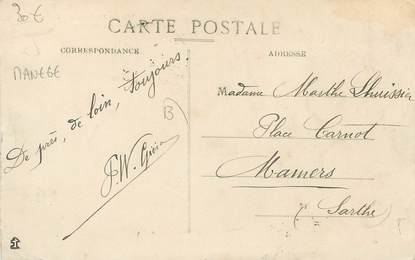 30€
CARTE POSTALE
CORRESPONDANCE
ADRESSE
MANEGE
De près, de loin, toujours.
B
Madame Marthe Lhuissier
Place Carnot
Mamers
(Sarthe)